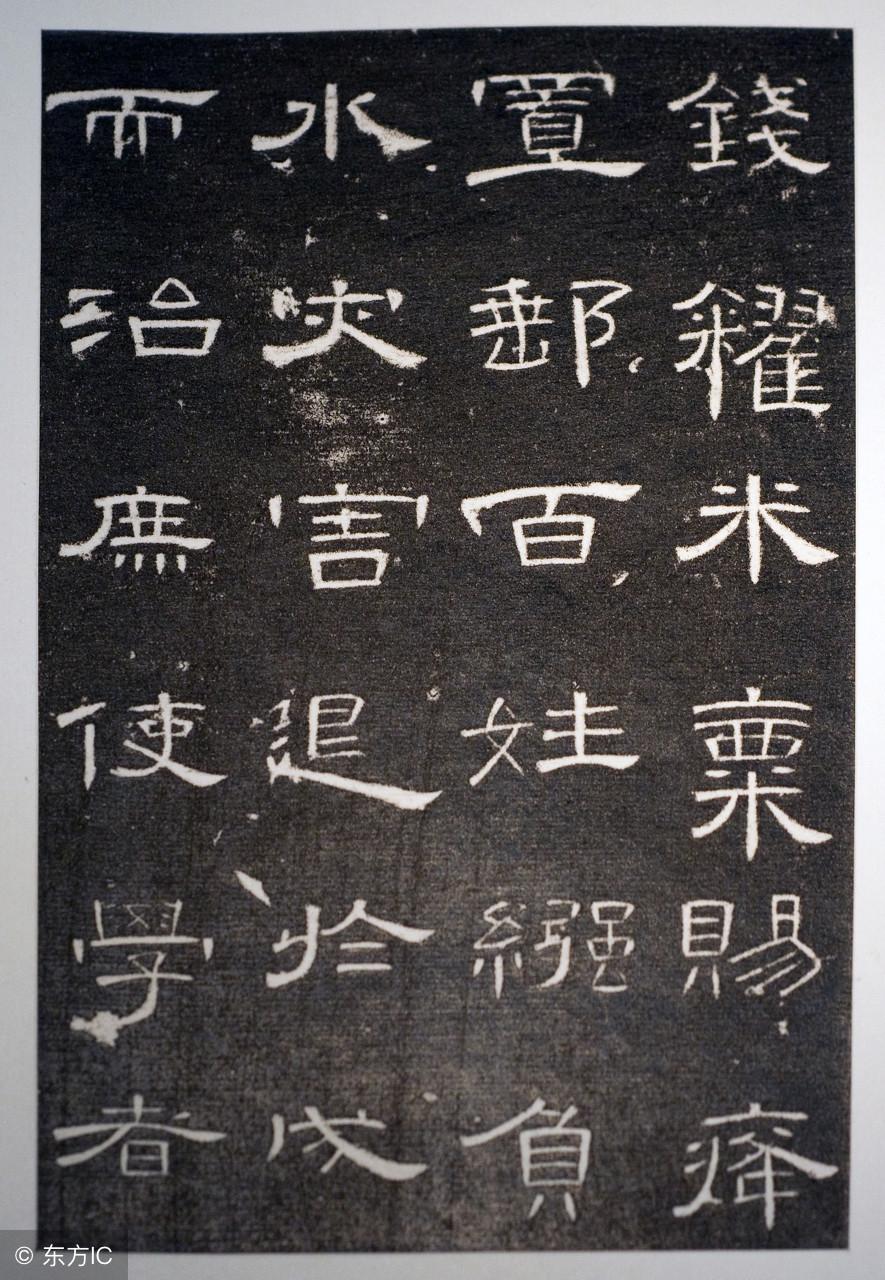 錢糴米粟賜癃
置郵百姓繈負
水灾害退於戌
而治庶使學者
© 东方IC